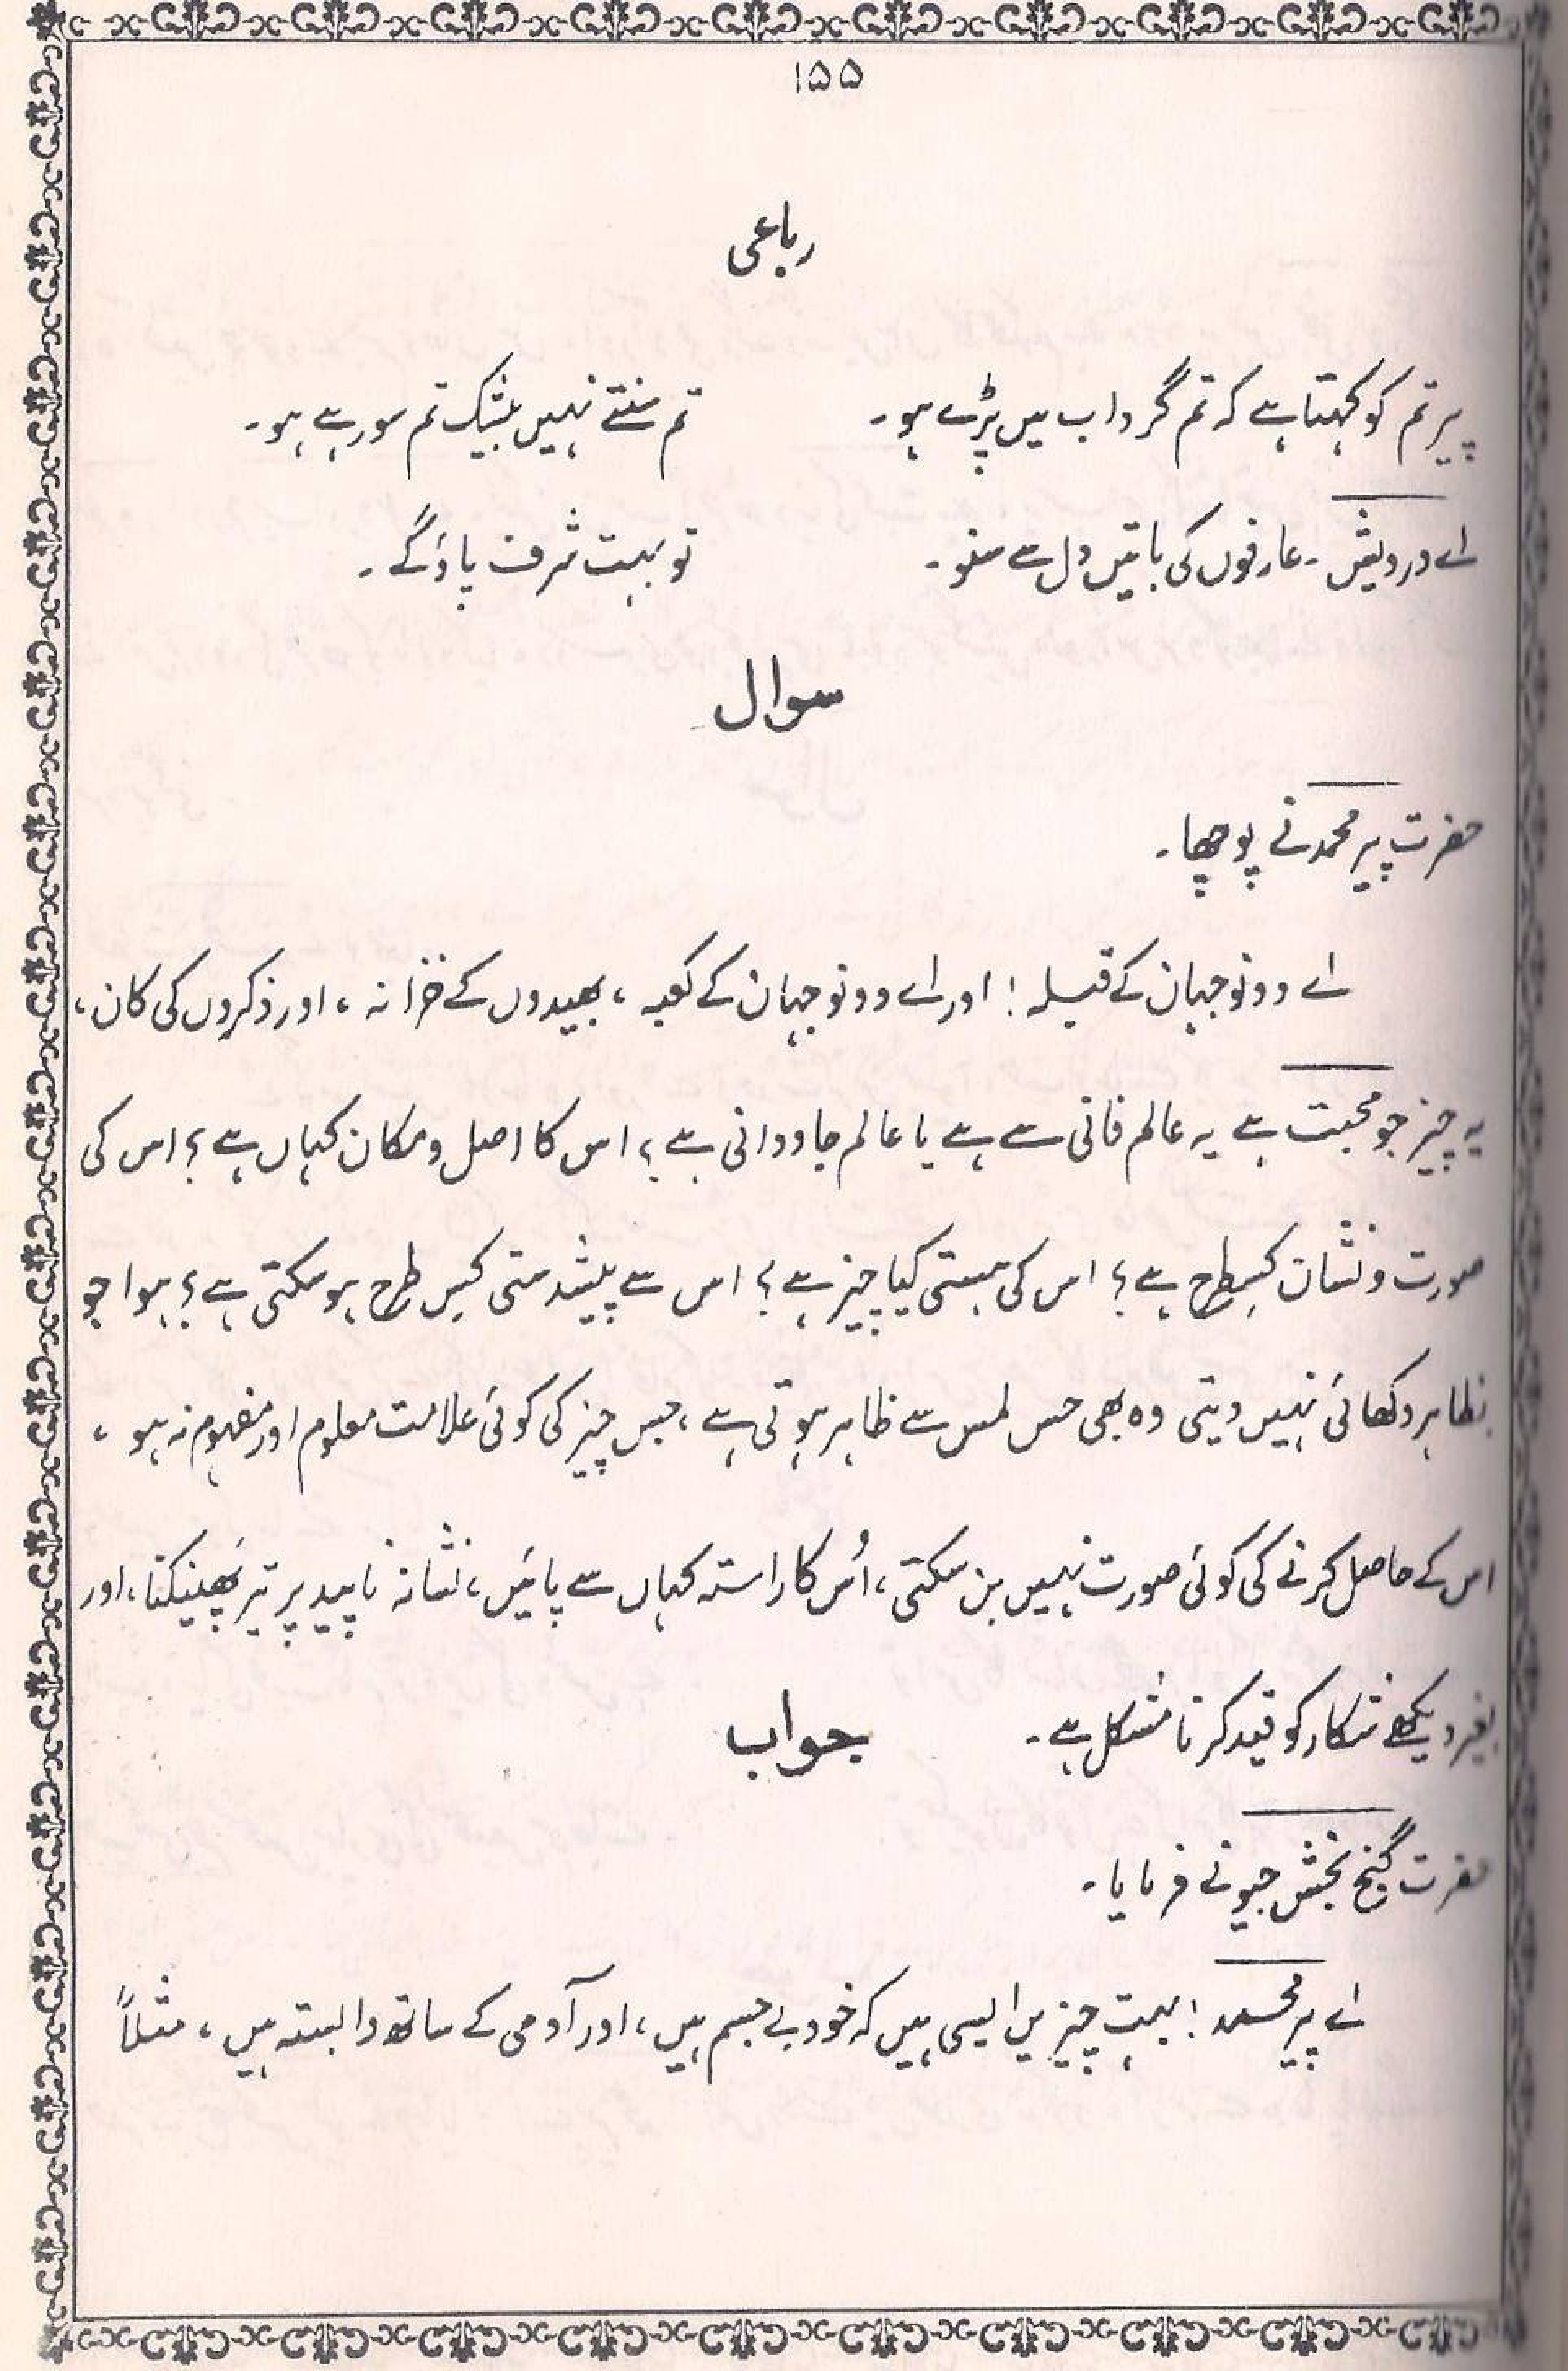 ۱۵۵
رباعی
پیر تم کو کہتا ہے کہ تم گرداب میں پڑے ہو۔ تم سنتے نہیں بیشک تم سو رہے ہو۔
اے درویش۔ عارفوں کی باتیں دل سے سنو۔ تو بہت شرف پاؤ گے۔
سوال
حضرت پیر محمد نے پوچھا۔
اے دونو جہان کے قبلہ! اور اے دونو جہان کے کعبہ، بھیدوں کے خزانہ، اور ذکروں کی کان،
یہ چیز جو محبت ہے یہ عالم فانی سے ہے یا عالم جاودانی ہے؟ اس کا اصل و مکان کہاں ہے؟ اس کی
صورت و نشان کسطرح ہے؟ اس کی ہستی کیا چیز ہے؟ اس سے پیشدستی کس طرح ہو سکتی ہے؟ ہوا جو
بظاہر دکھائی نہیں دیتی وہ بھی حس لمس سے ظاہر ہوتی ہے، جس چیز کی کوئی علامت معلوم اور مفہوم نہ ہو،
اس کے حاصل کرنے کی کوئی صورت نہیں بن سکتی، اُس کا راستہ کہاں سے پائیں، نشانہ ناپید پر تیر پھینکنا، اور
بغیر دیکھے شکار کو قید کرنا مشکل ہے۔
جواب
حضرت گنج بخش جیو نے فرمایا۔
اے پیر محمد! بہت چیزیں ایسی ہیں کہ خود بے جسم ہیں، اور آدمی کے ساتھ وابستہ ہیں، مثلاً